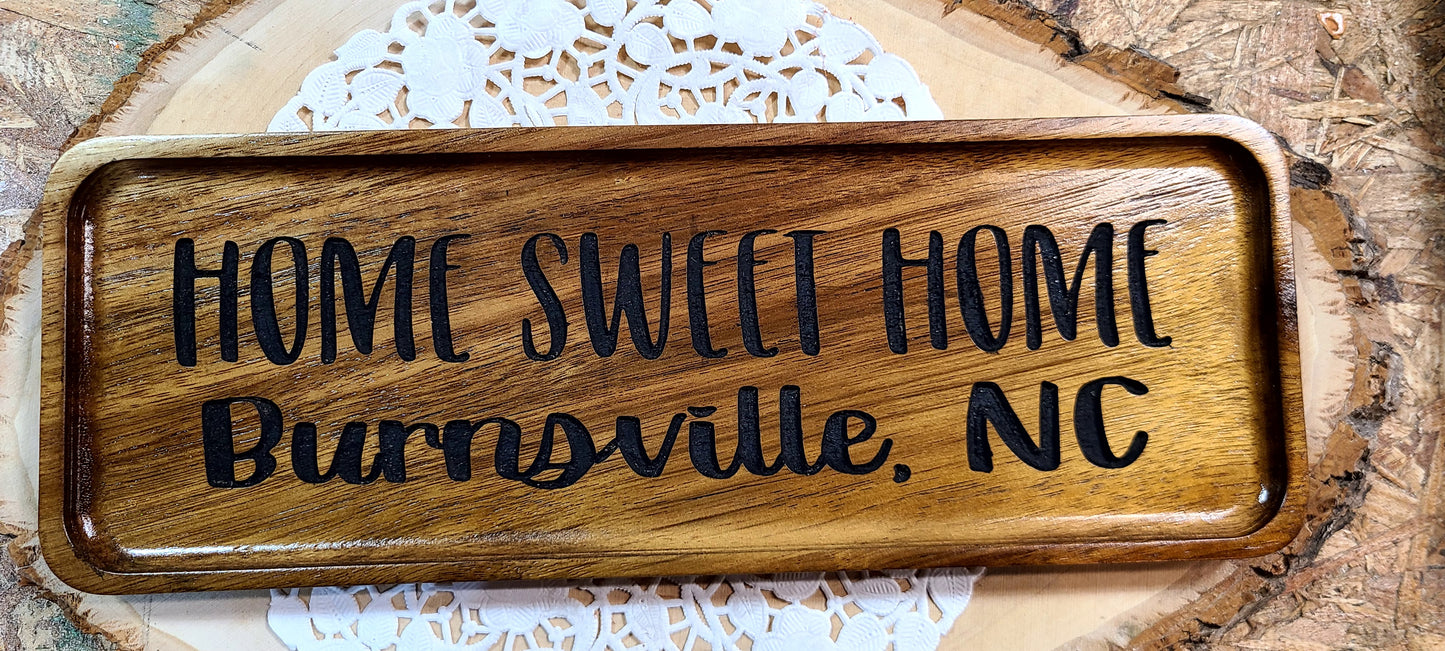 HOME SWEET HOME
Burnsville, NC